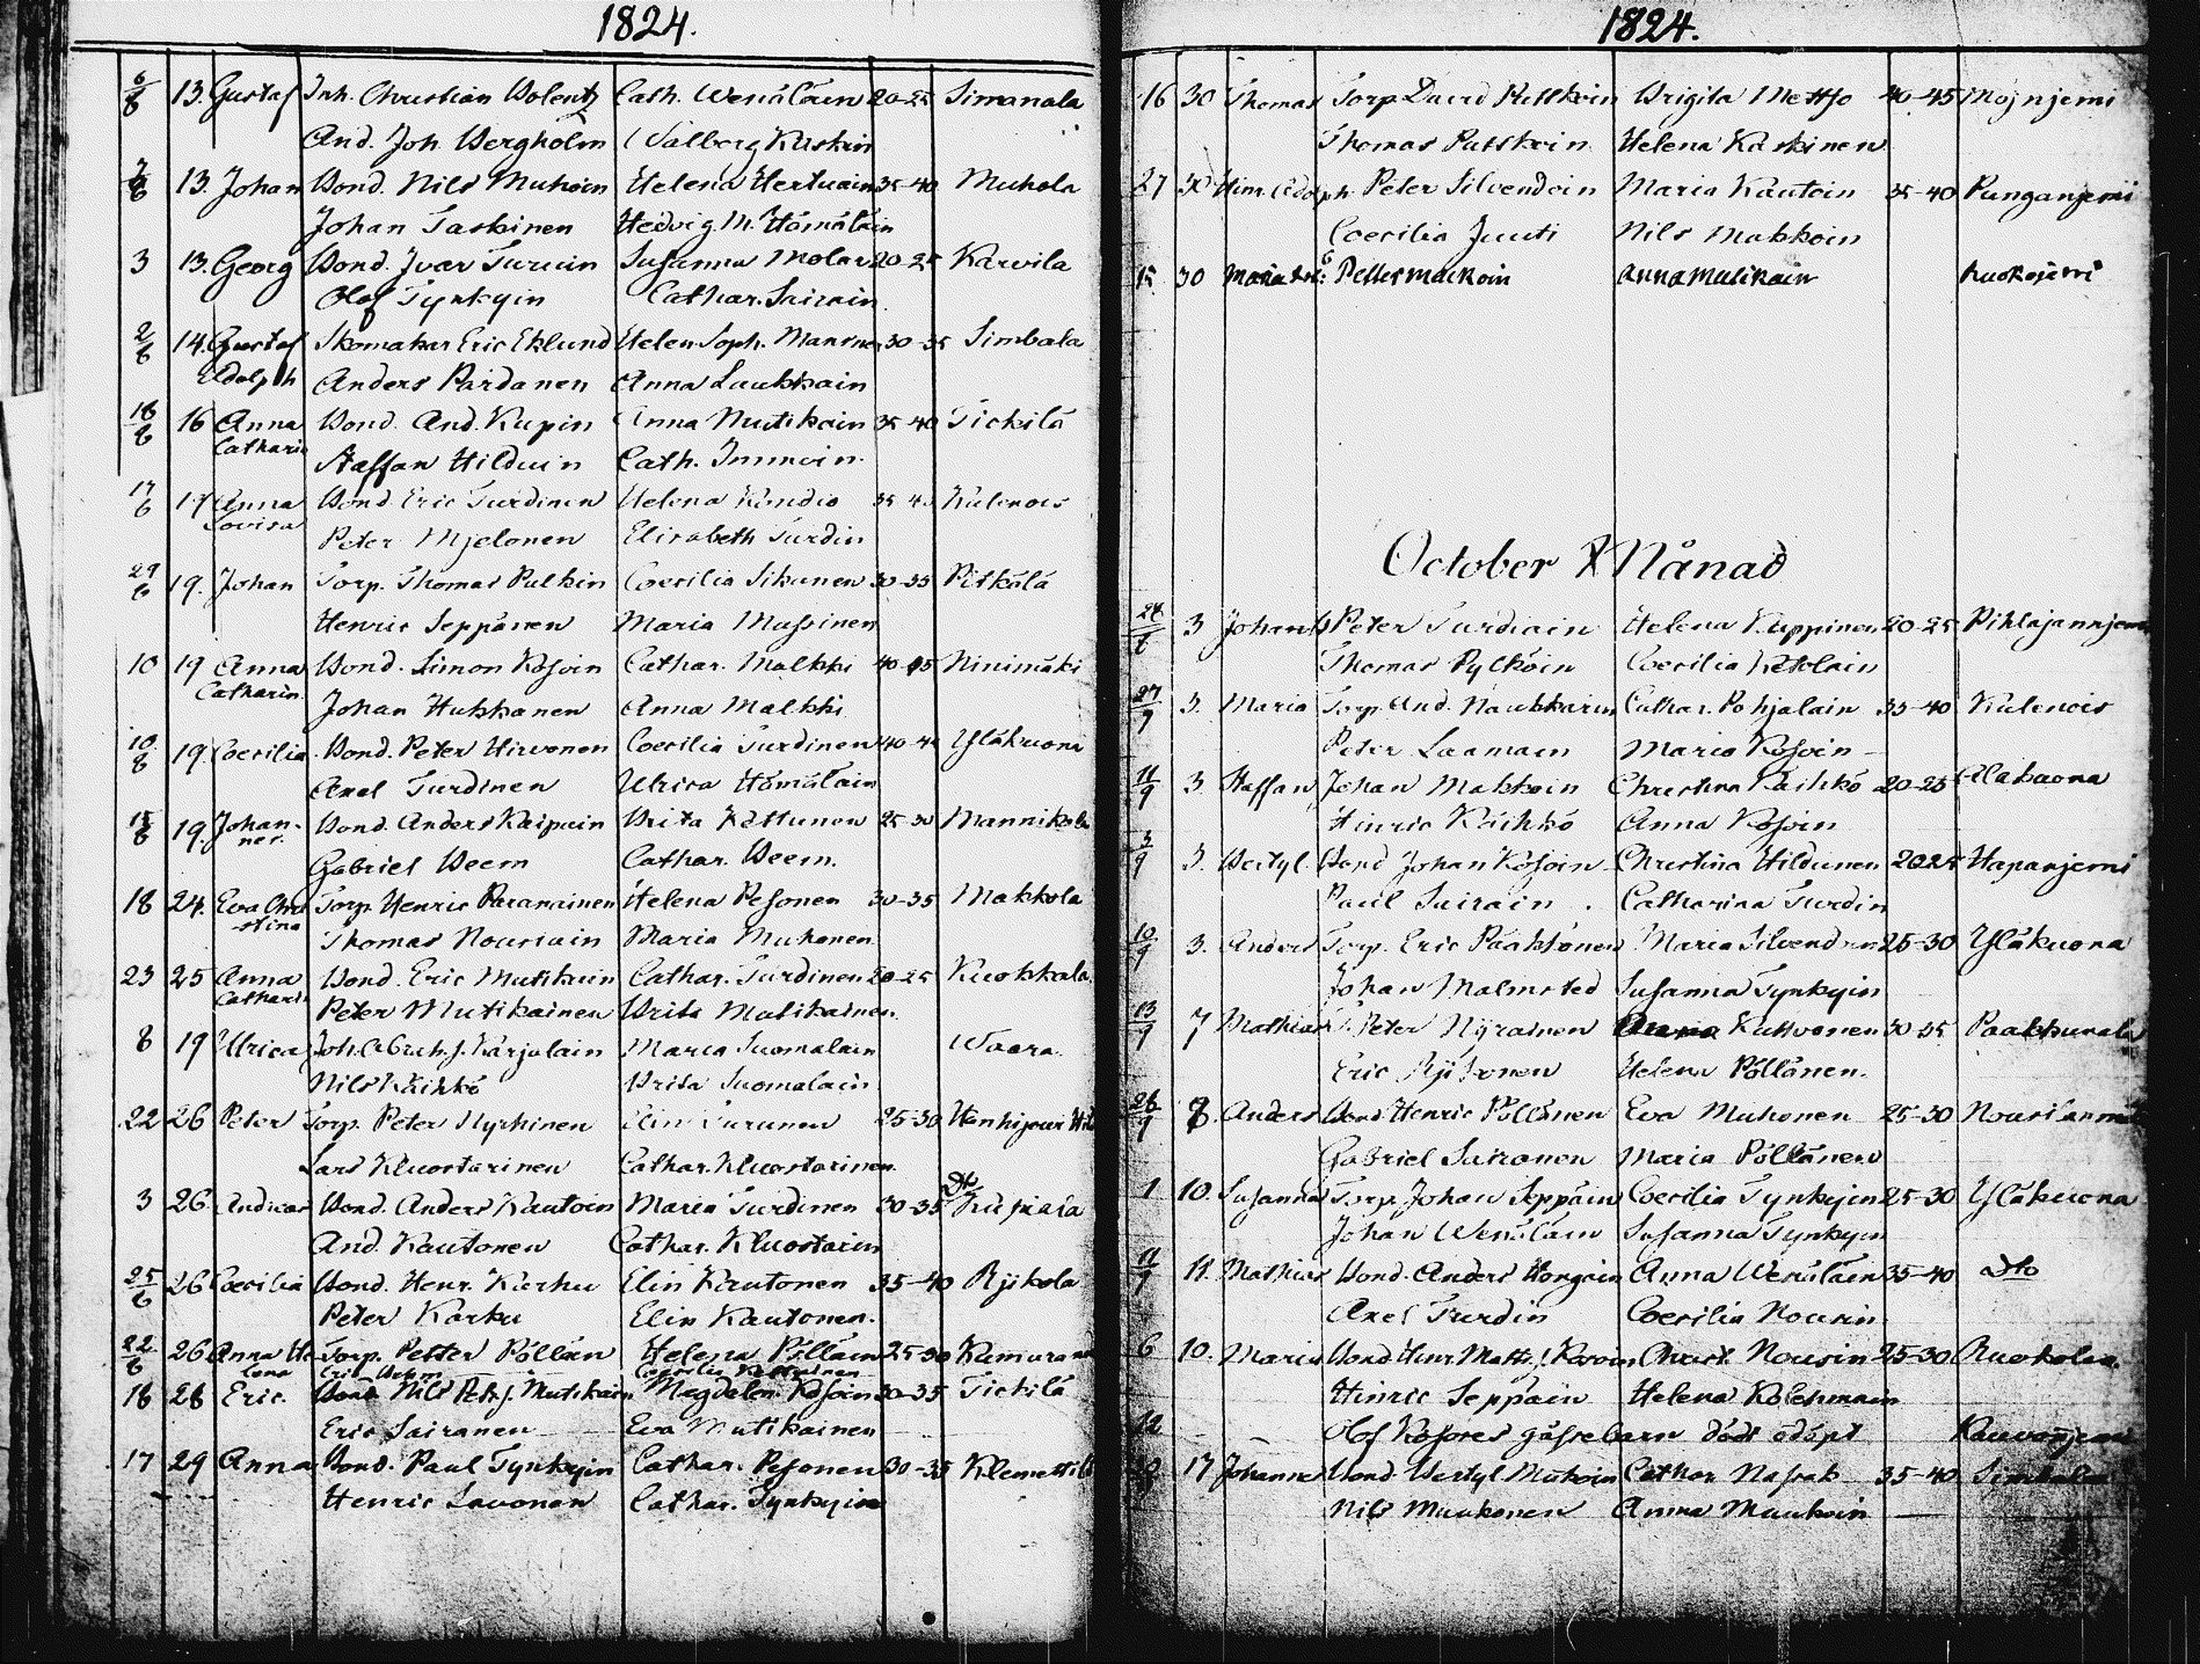 1824.
6/8 13. Gustaf Inh. Christian Wolentz Cath. Wenäläin 20-25 Simanala
And. Joh. Bergholm Walborg Kuskin
7/8 13. Johan Bond. Nils Muhoin Helena Hertuain 35-40 Muhola
Johan Taskinen Hedvig M. Hämäläin
3 13. Georg Bond. Ivar Turuin Susanna Molar 20-25 Karvila
Olof Tynkyin Cathar. Sairain
2/6 14. Gustaf Skomakar Eric Eklund Helen Soph. 30-35 Simbala
Adolph Anders Pardanen Anna Laukkain
18/6 16 Anna Bond. And. Kupin Anna Mutikain 35-40 Tickilä
Catharin Staffan Hilduin Cath. Immoin
17/6 17 Anna Bond. Eric Turdinen Helena Kondio 35-40 Kulenois
Lovisa Peter Mjelonen Elisabeth Turdin
29/6 19. Johan Torp. Thomas Pulkin Coecilia Sikanen 30-35 Pitkälä
Henric Seppänen Maria Mussinen
10 19 Anna Bond. Simon Kosoin Cathar. Malkki 40-45 Ninimäki
Catharin. Johan Hukkanen Anna Malkki
10/8 19. Coecilia Bond. Peter Hirvonen Coecilia Turdinen 40-45 Yläkuona
Axel Turdinen Ulrica Hämäläin
15/8 19. Johan- Bond. Anders Kaipain Brita Kättunen 25-30 Mannikala
nes. Gabriel Weem Cathar. Weem.
18 24. Eva Chri Torp. Henric Paranainen Helena Pesonen 30-35 Makkola
stina Thomas Nousiain Maria Muhonen
23 25 Anna Bond. Eric Mutikain Cathar. Turdinen 20-25 Kuokkala
Catharin Peter Mutikainen Brita Mutikainen.
8 19 Ulrica Joh. Abrah. s. Karjalain Maria Suomalain Waara.
Nils Käihkö Brita Suomalain
22 26 Peter Torp. Peter Nyrhinen Elin Turunen 25-30
Lars Kluostarinen Cathar. Kluostarinen.
Dto
3 26. Andreas Bond. Anders Kautoin Maria Turdinen 30-35
And. Kautonen Cathar. Kluostarin
25/6 26 Coecilia Bond. Henr. Karhu Elin Kautonen 35-40 Rjikola
Peter Karhu Elin Kautonen.
22/6 26 Anna He Torp. Petter Pöllän Helena Pölläin 25-30
lena Eric Coecilia
18 28 Eric. Bond. Nils Pet. s. Mutikain Magdalen. Kosoin 30-35 Tickilä
Eric Sairanen Eva Mutikainen
17 29 Anna Bond. Paul Tynkyin Cathar. Pesonen 30-35 Klemettilä
Henric Lavonen Cathar. Tynkyin
1824.
16 30 Thomas Torp. David Putkoin Brigita Mettso 40-45 Mojnjemi
Thomas Putkoin Helena Kaskinen
27 30 Hinr. Adolph Peter Silvendoin Maria Kautoin 35-40 Punganjemi
Coecilia Juuti Nils Makkoin
15 30 Maria Petter Mackoin Anna Mutikain
October Månad
24/8 3 Johan Peter Turdiain Helena Kuppinen 20-25 Pihlajannjemi
Thomas Pylköin Coecilia Ketolain
27/9 3. Maria Torp. And. Naukkarin Cathar. Pohjalain 35-40 Kulenois
Peter Laamain Maria Kosoin
11/9 3. Staffan Johan Makkoin Christina Käihkö 20-25 Alakuona
Hinric Käihkö Anna Kosoin
3/9 3. Bertyl. Bond Johan Kosoin Christina Hildunen 20-25 Hapanjemi
Paul Sairain Catharina Turdin
10/9 3. Anders Torp. Eric Pääkkönen Maria Silvendoin 25-30 Yläkuona
Johan Malmsted Susanna Tynkyin
13/9 7 Mathias T. Peter Nyrainen Kuttvonen 30-35 Paakkunala
Eric Helena Pöllänen.
26/9 8. Anders Bond. Henric Pöllänen Eva Muhonen 25-30
Gabriel Sairanen Maria Pöllänen
1 10. Susanna Torp. Johan Seppäin Coecilia Tynkyin 25-30 Yläkuona
Johan Wenäläin Susanna Tynkyin
11/9 11. Mathias Bond. Anders Hongain Anna Wenäläin 35-40 Dto
Axel Turdin Coecilia Nousin
6 10. Maria Bond. Henr. Matts. s. Kosoin Christ. Nousin 25-30 Ruokolax
Hinric Seppäin Helena Kolehmain
12 Olof Kososes gåsse barn dödt odöpt
17 Johannes Bond. Bertyl Muhoin Cathar. Nasak 35-40 Simbala
Nils Muukonen Anna Muukoin